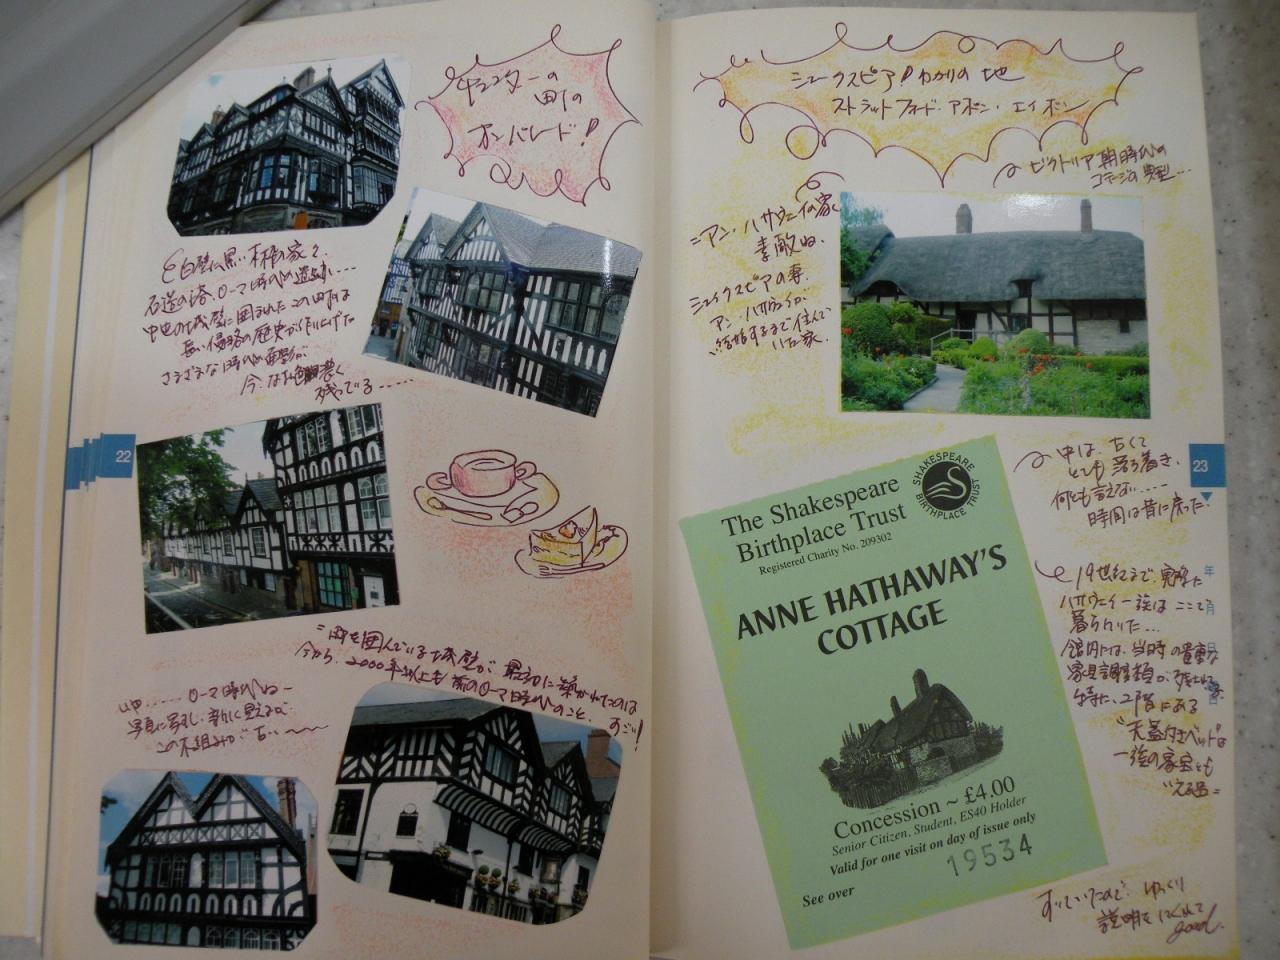 チェスターの
町の
オンパレード!
白壁に黒い木枠の家々、
石造の塔、ローマ時代の遺跡.....
中世の城壁に囲まれたこの町は
長い侵略の歴史が作り上げた
さまざまな時代の面影が
今なお色濃く
残っている.....
22
=町を囲んでいる城壁が最初に築かれたのは
今から、2000年以上も前のローマ時代のこと、すごい!
ローマ時代ねー
写真に写すと、新しく見えるが、
この木組みが古い〜
シェークスピアゆかりの地
ストラットフォード・アポン・エイボン
ビクトリア朝時代の
コテージの典型...
=アン・ハサウェイの家
素敵ね、
シェイクスピアの妻、
アン・ハサウェイが、
結婚するまで住んで
いた家、
中は、古くて
とても落ち着き、
何とも言えない.....
時間は昔に戻った、
23
年
月
日
19世紀まで、実際に
ハサウェイ一族はここで
暮らしていた...
館内には、当時の貴重な
家具調度類が残され
特に、2階にある
"天蓋付きベッド"は
一族の家宝とも
The Shakespeare
Birthplace Trust
Registered Charity No. 209302
SHAKESPEARE BIRTHPLACE TRUST
ANNE HATHAWAY'S
COTTAGE
Concession ~ £4.00
Senior Citizen, Student, ES40 Holder
Valid for one visit on day of issue only
19534
See over
すいていたので、ゆっくり
説明をしてくれて
good.